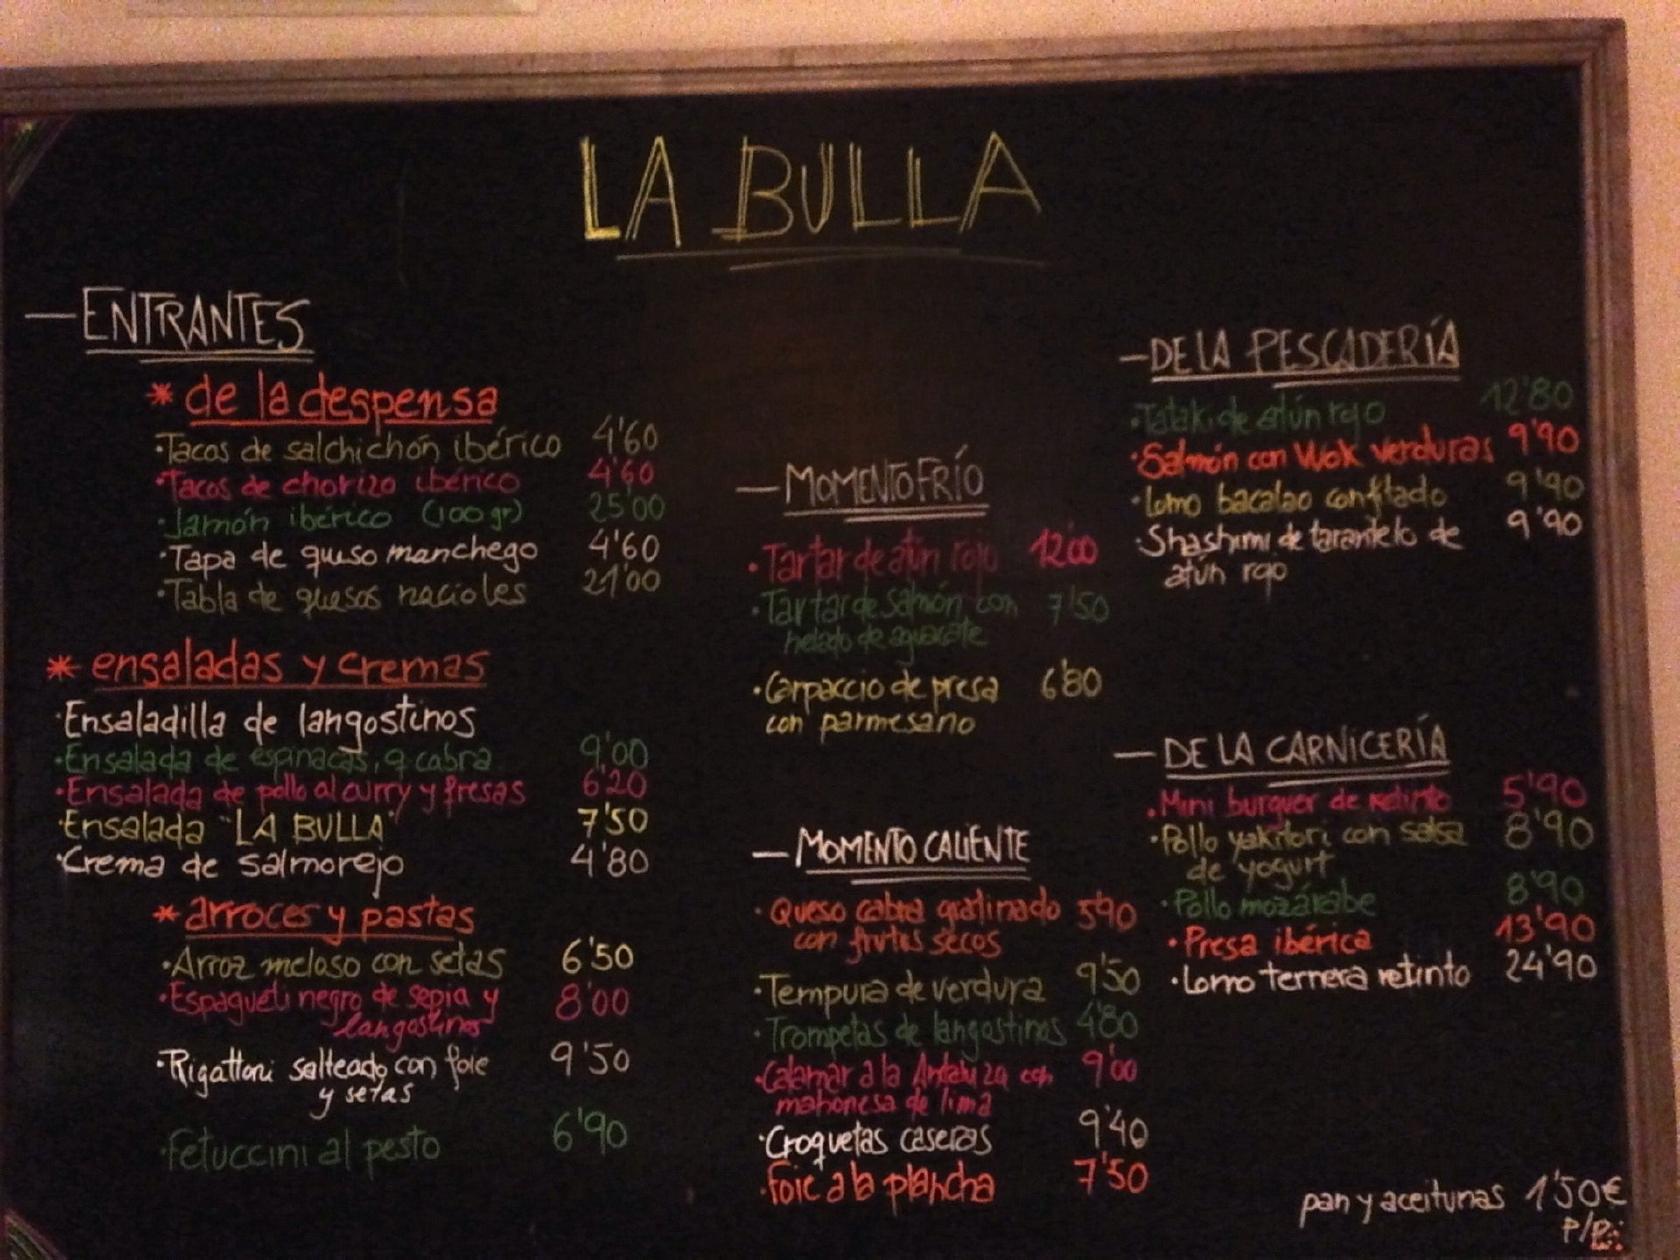 LA BULLA
— ENTRANTES
* de la despensa
·Tacos de salchichón ibérico 4'60
·Tacos de chorizo ibérico 4'60
·Jamón ibérico (100gr) 25'00
·Tapa de queso manchego 4'60
·Tabla de quesos nacioles 21'00
* ensaladas y cremas
·Ensaladilla de langostinos
·Ensalada de espinacas, q cabra 9'00
·Ensalada de pollo al curry y fresas 6'20
·Ensalada "LA BULLA" 7'50
·Crema de salmorejo 4'80
* arroces y pastas
·Arroz meloso con setas 6'50
·Espagueti negro de sepia y 8'00
langostinos
·Rigattoni salteado con foie 9'50
y setas
·Fetuccini al pesto 6'90
— MOMENTO FRÍO
·Tartar de atún rojo 12'00
·Tartar de salmón con 7'50
helado de aguacate
·Carpaccio de presa 6'80
con parmesano
— MOMENTO CALIENTE
·Queso cabra gratinado 5'90
con frutos secos
·Tempura de verdura 9'50
·Trompetas de langostinos 4'80
·Calamar a la Andaluza con 9'00
mahonesa de lima
·Croquetas caseras 9'40
·Foie a la plancha 7'50
— DE LA PESCADERÍA
·Tataki de atún rojo 12'80
·Salmón con Wok verduras 9'90
·Lomo bacalao confitado 9'90
·Shashimi de tarantelo de 9'90
atún rojo
— DE LA CARNICERÍA
·Mini burguer de retinto 5'90
·Pollo yakitori con salsa 8'90
de yogurt
·Pollo mozárabe 8'90
·Presa ibérica 13'90
·Lomo ternera retinto 24'90
pan y aceitunas 1'50€